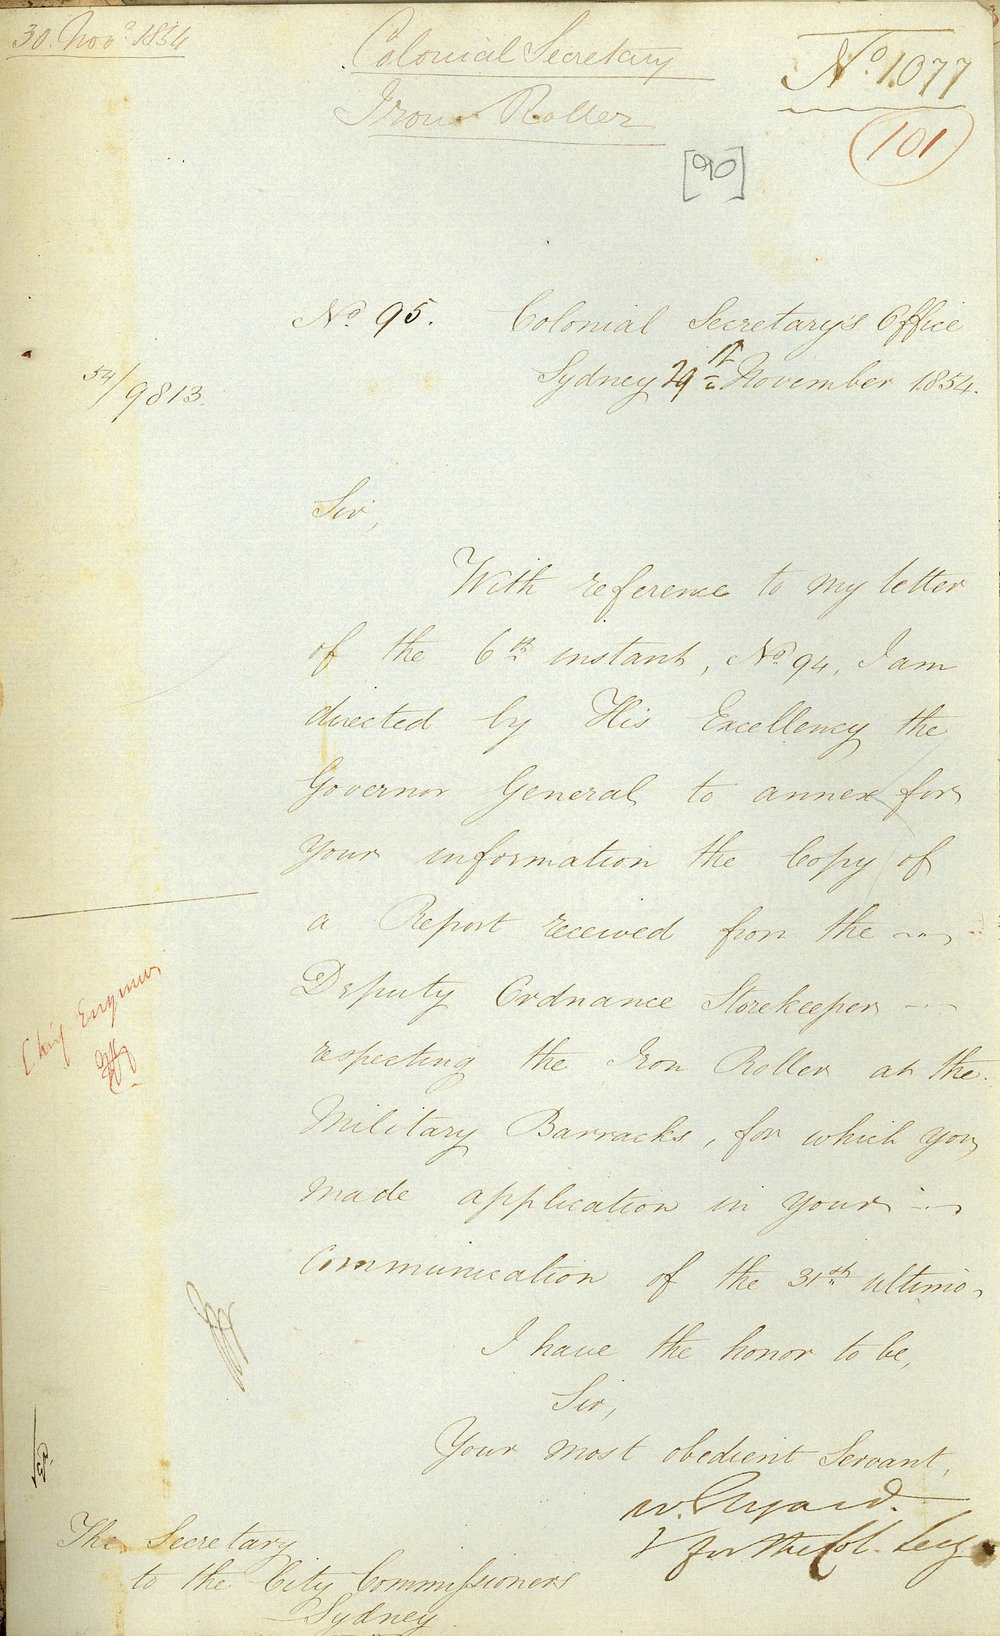 30. Nov. 1854
Colonial Secretary
Iron Roller
No. 1077
101
[90]
No. 95. Colonial Secretary's Office
Sydney 29th November 1854.
54/9813.
Sir,
With reference to my letter
of the 6th instant, No. 94, I am
directed by His Excellency the
Governor General to annex for
your information the Copy of
a Report received from the
Deputy Ordnance Storekeeper
respecting the Iron Roller at the
Military Barracks, for which you
made application in your
communication of the 31st ultimo,
Chief Engineer
I have the honor to be,
Sir,
Your most obedient Servant,
W. Elyard.
for the Col. Secy
The Secretary
to the City Commissioners
Sydney.